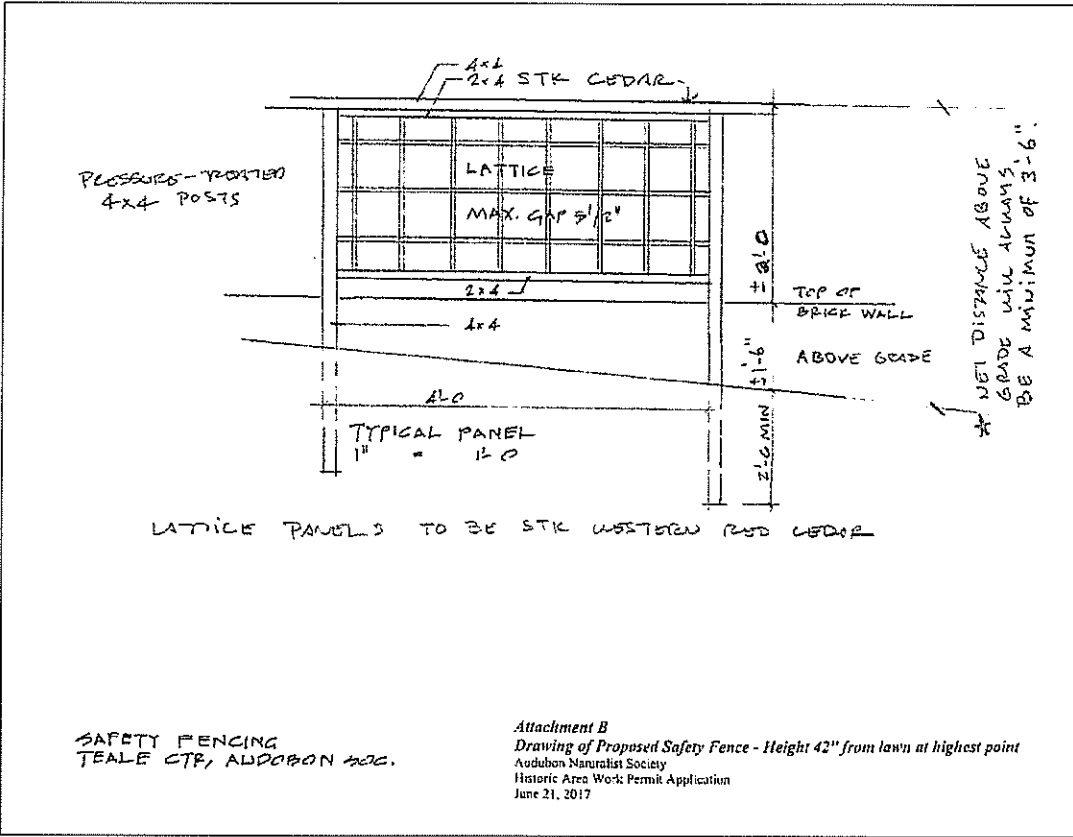 4x4
2x4 STK CEDAR
PRESSURE-TREATED
4x4 POSTS
LATTICE
MAX. GAP 5 1/2"
2x4
4x4
± 2'-0
TOP OF
BRICK WALL
ABOVE GRADE
±1'-6"
2'-6 MIN
* NET DISTANCE ABOVE
GRADE WILL ALWAYS
BE A MINIMUM OF 3'-6".
4'-0
TYPICAL PANEL
1" = 1'-0
LATTICE PANELS TO BE STK WESTERN RED CEDAR
SAFETY FENCING
TEALE CTR, AUDOBON SOC.
Attachment B
Drawing of Proposed Safety Fence - Height 42" from lawn at highest point
Audubon Naturalist Society
Historic Area Work Permit Application
June 21, 2017